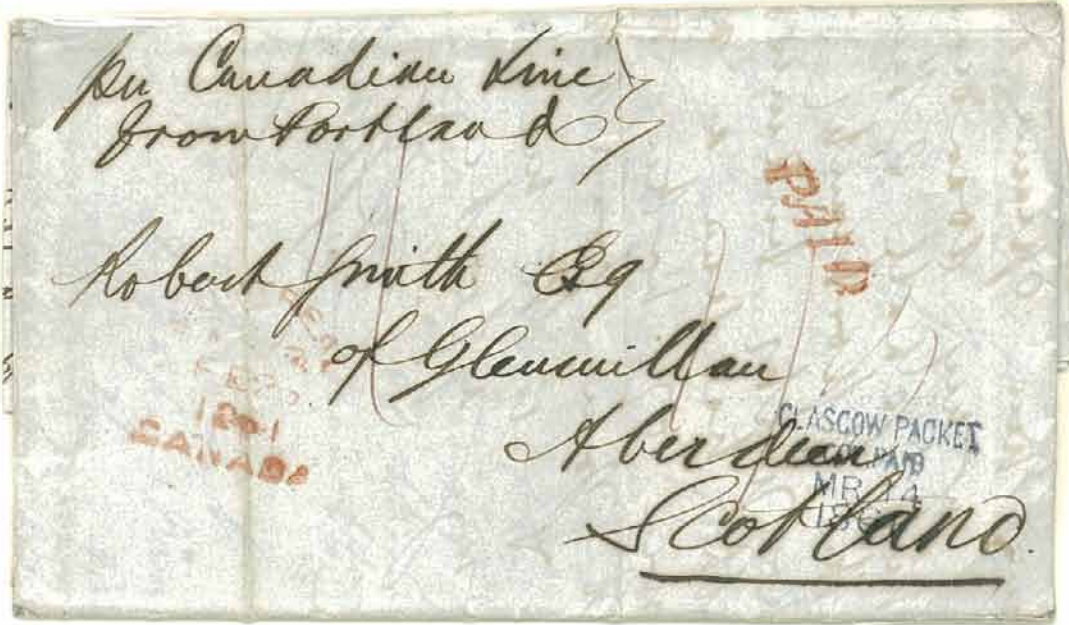 per Canadian Line
from Portland
PAID
Robert Smith Esq
of Glenmillan
Aberdeen
Scotland.
1861
CANADA
GLASGOW PACKET
PAID
MR 14